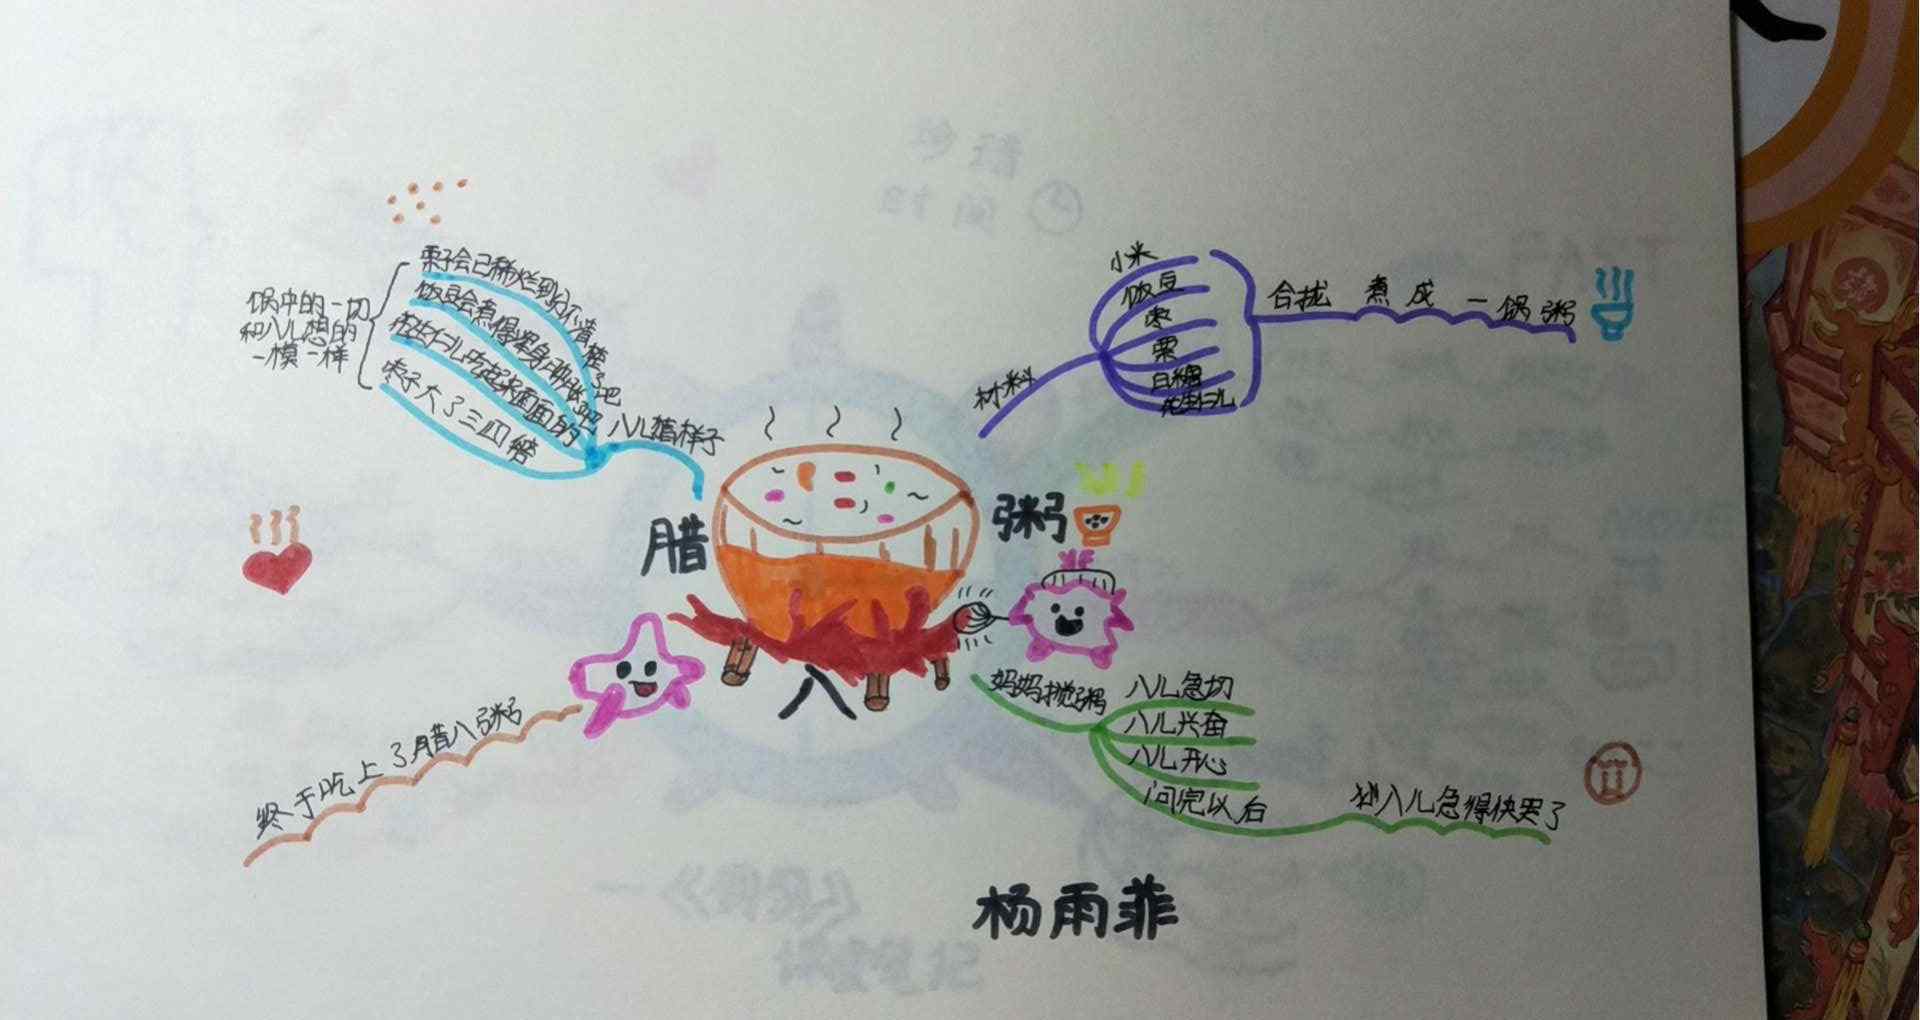 材料
小米
饭豆
枣
栗
白糖
花生仁儿
合拢 煮成一锅粥
妈妈搅粥
八儿急切
八儿兴奋
八儿开心
问完以后
八儿急得快哭了
终于吃上了腊八粥
八儿猜样子
栗子会已稀烂到分不清楚了吧
饭豆会煮得浑身肿胀了吧
花生仁儿吃起来面面的
枣子大了三四倍
锅中的一切
和八儿想的
一模一样
腊
八
粥
杨雨菲